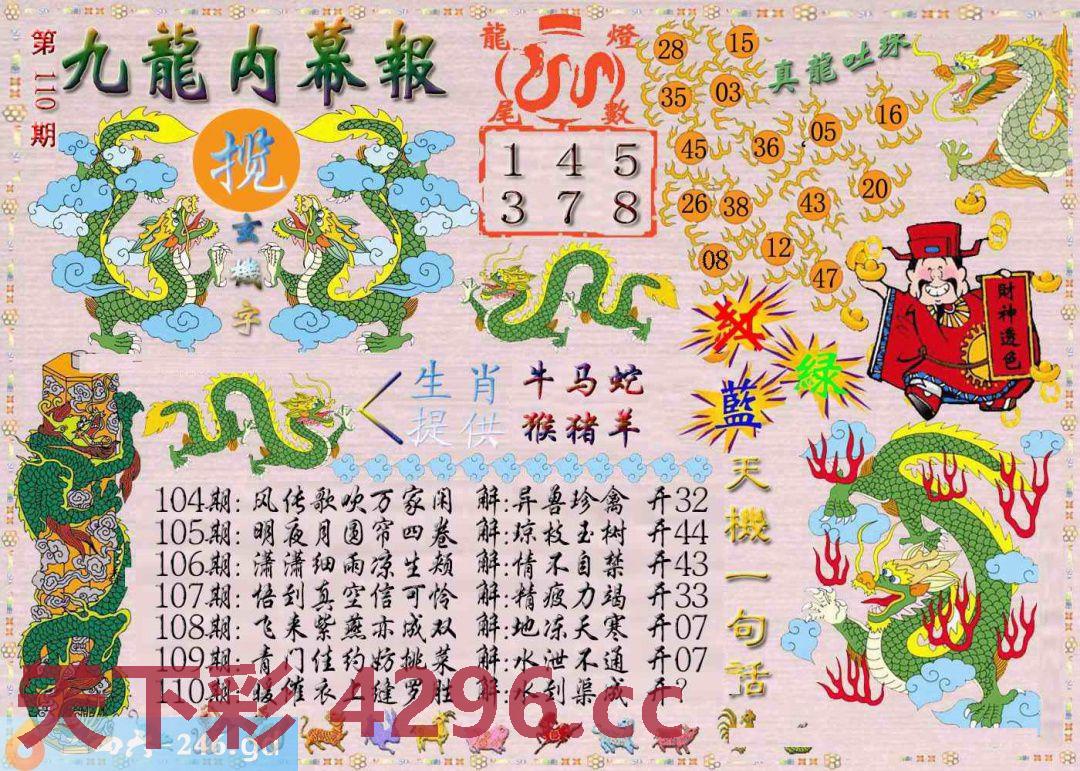 第110期
九龍内幕報
揽
玄機字
龍燈
尾數
1 4 5
3 7 8
真龍吐珠
28 15
35 03
45 36 05 16
26 38 43 20
08 12 47
財神透色
红
绿
藍
生肖 牛马蛇
提供 猴猪羊
天機一句話
104期:风传歌吹万家闲 解:异兽珍禽 开32
105期:明夜月圆帘四卷 解:琼枝玉树 开44
106期:潇潇细雨凉生颊 解:情不自禁 开43
107期:悟到真空信可怜 解:精疲力竭 开33
108期:飞来紫燕亦成双 解:地冻天寒 开07
109期:青门佳约妨挑菜 解:水泄不通 开07
110期: 催衣上缝罗 解:水到渠成 开?
天下彩 4296.cc
=246.gd